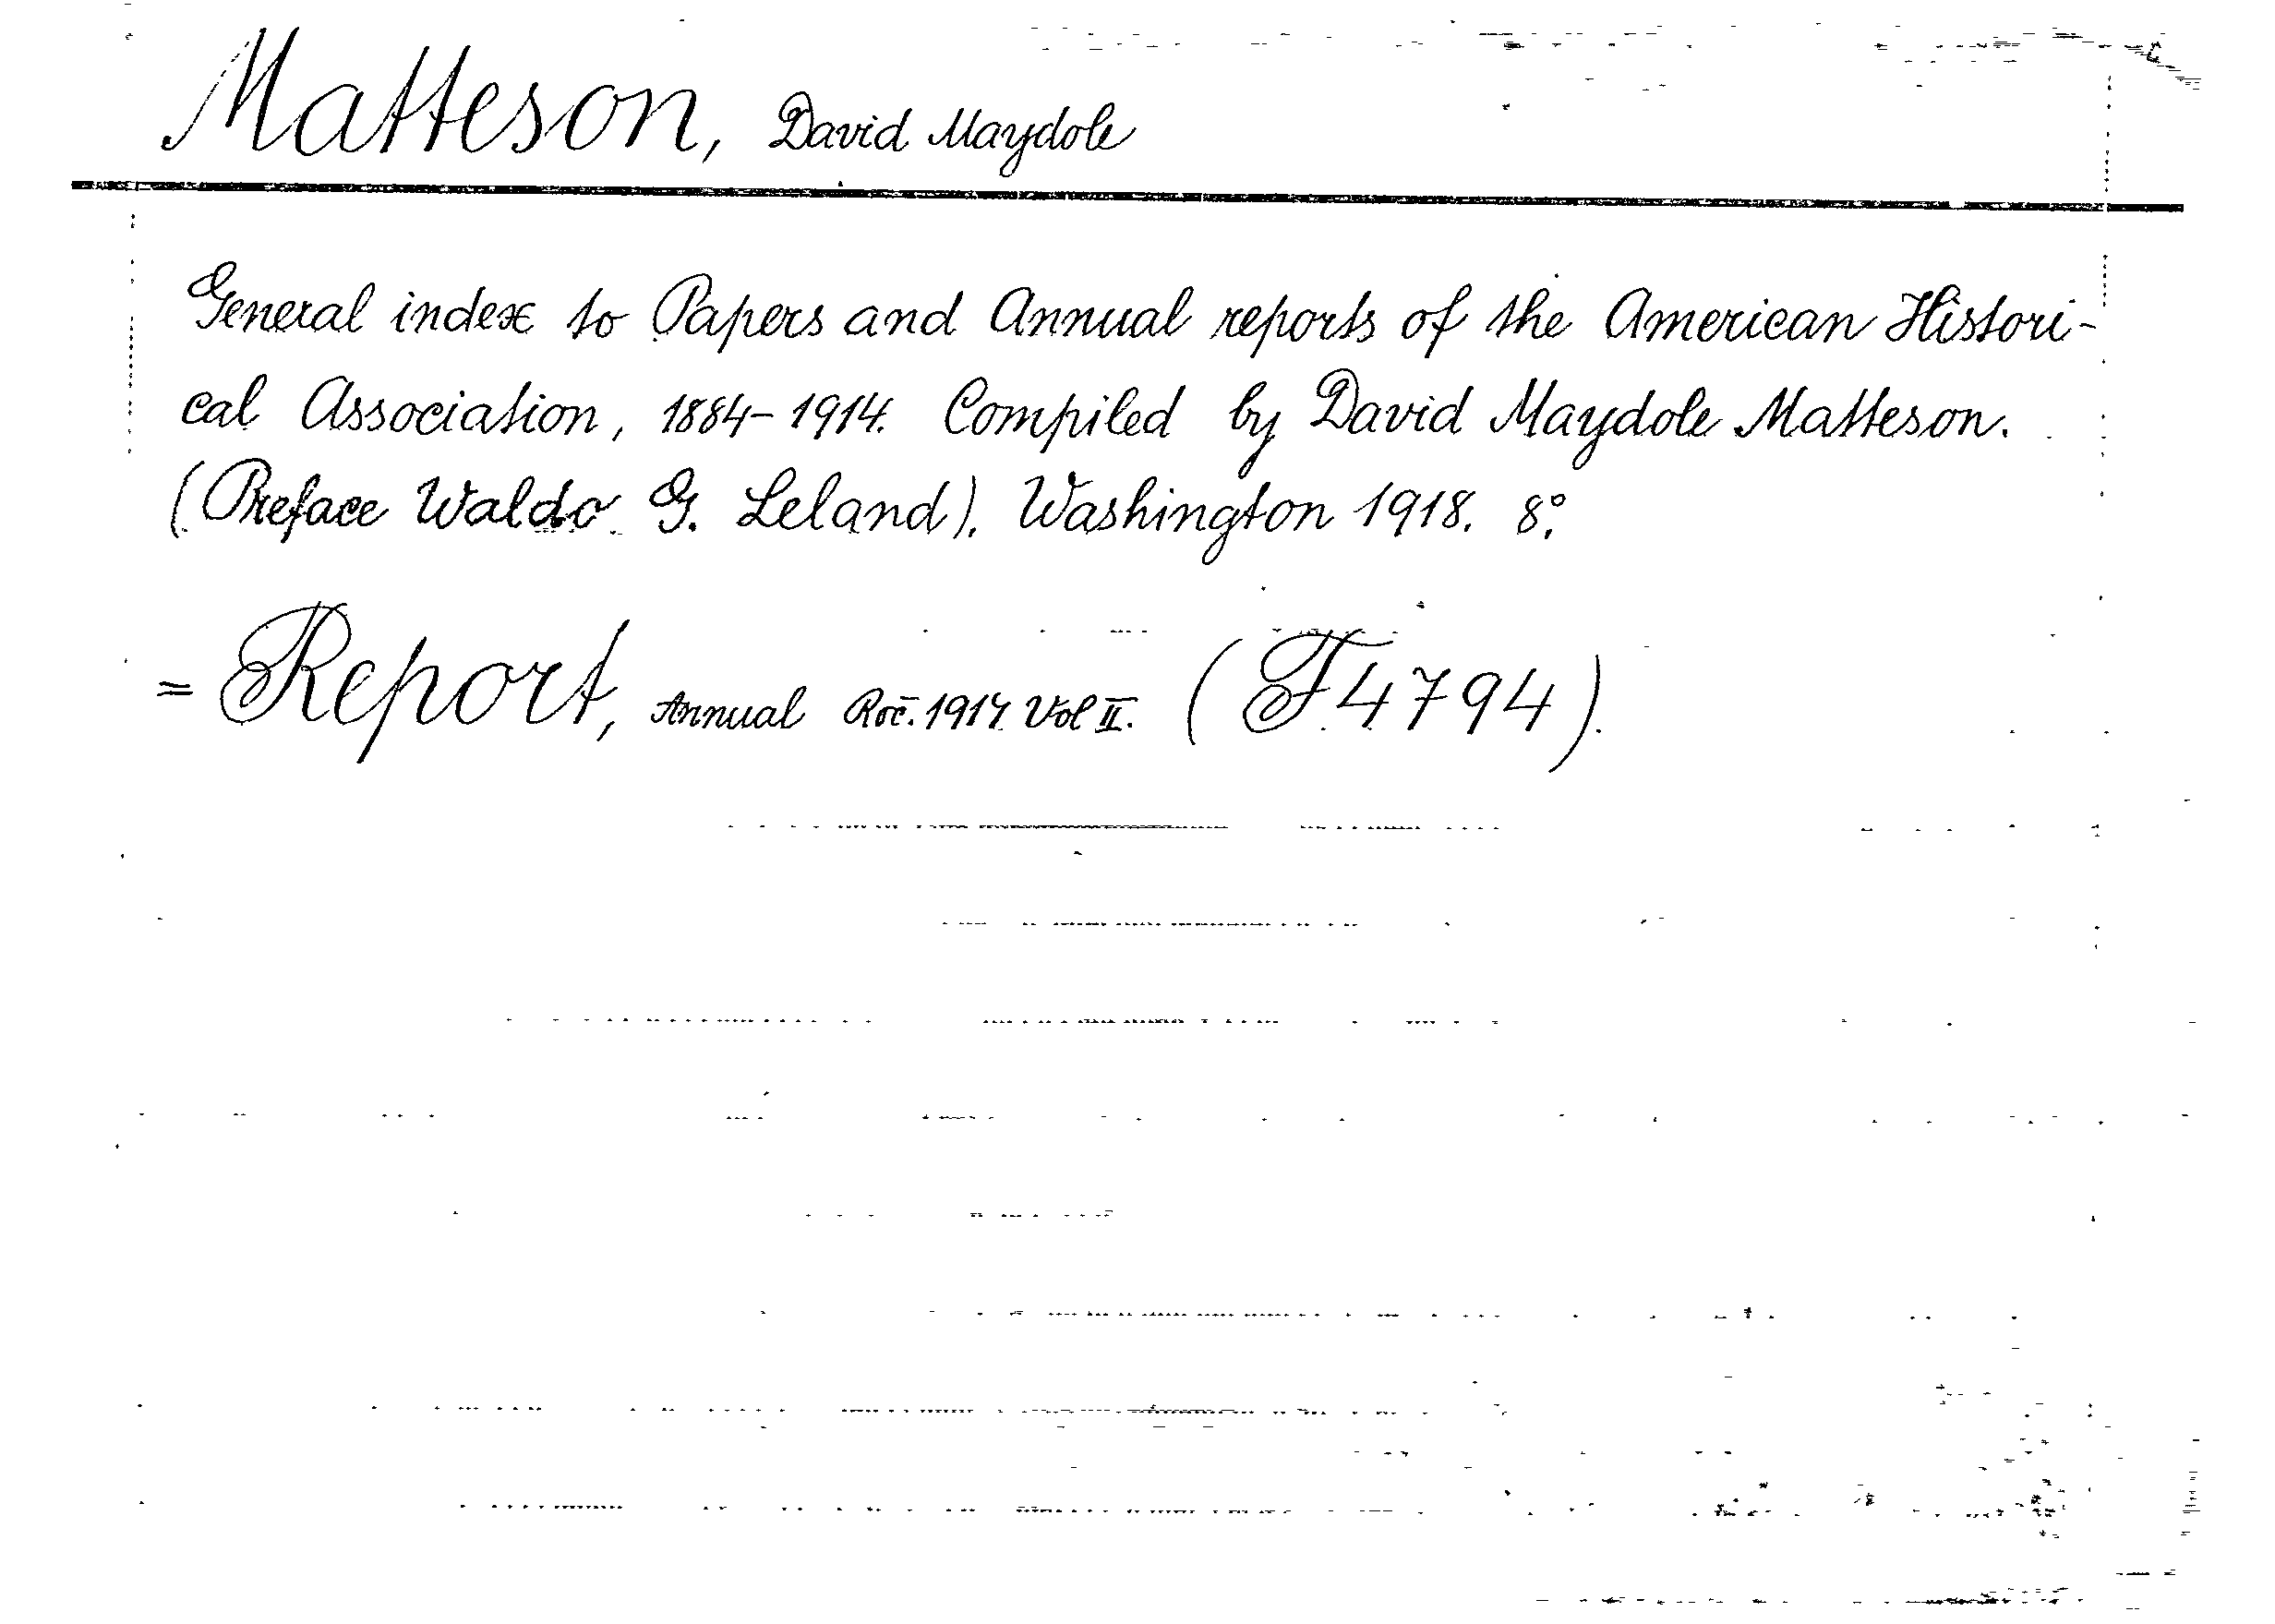 Matteson, David Maydole
General index to Papers and Annual reports of the American Histori-
cal Association, 1884-1914. Compiled by David Maydole Matteson.
(Preface Waldo G. Leland). Washington 1918. 8°.
= Report, Annual Roč. 1914 Vol II. (F 4794).